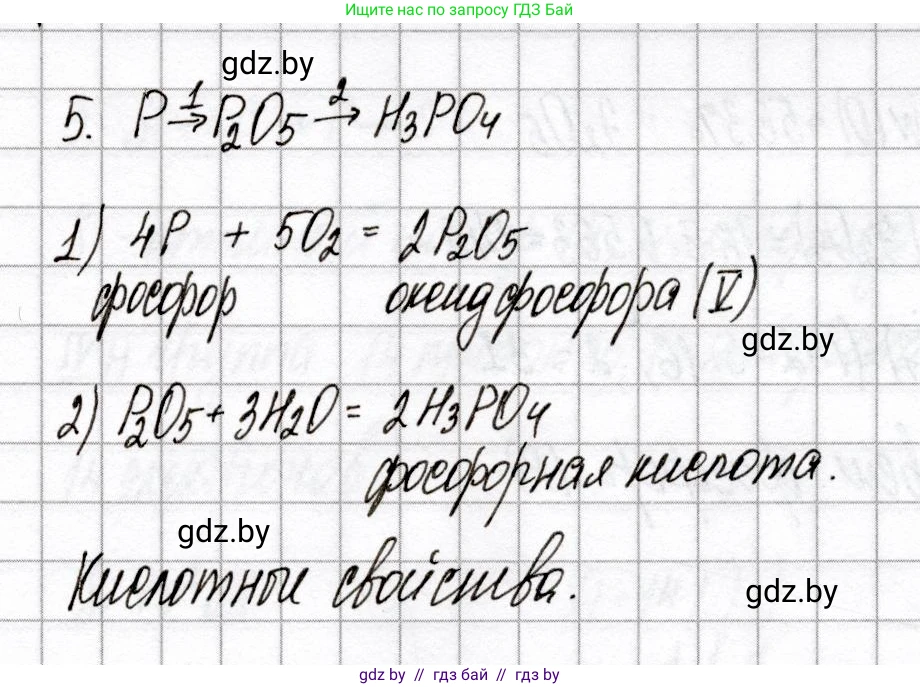 Ищите нас по запросу ГДЗ Бай
gdz.by
5. P →1 P2O5 →2 H3PO4
1) 4P + 5O2 = 2P2O5
фосфор оксид фосфора (V)
gdz.by
2) P2O5 + 3H2O = 2H3PO4
фосфорная кислота.
gdz.by
Кислотные свойства.
gdz.by
gdz.by // гдз бай // гдз by